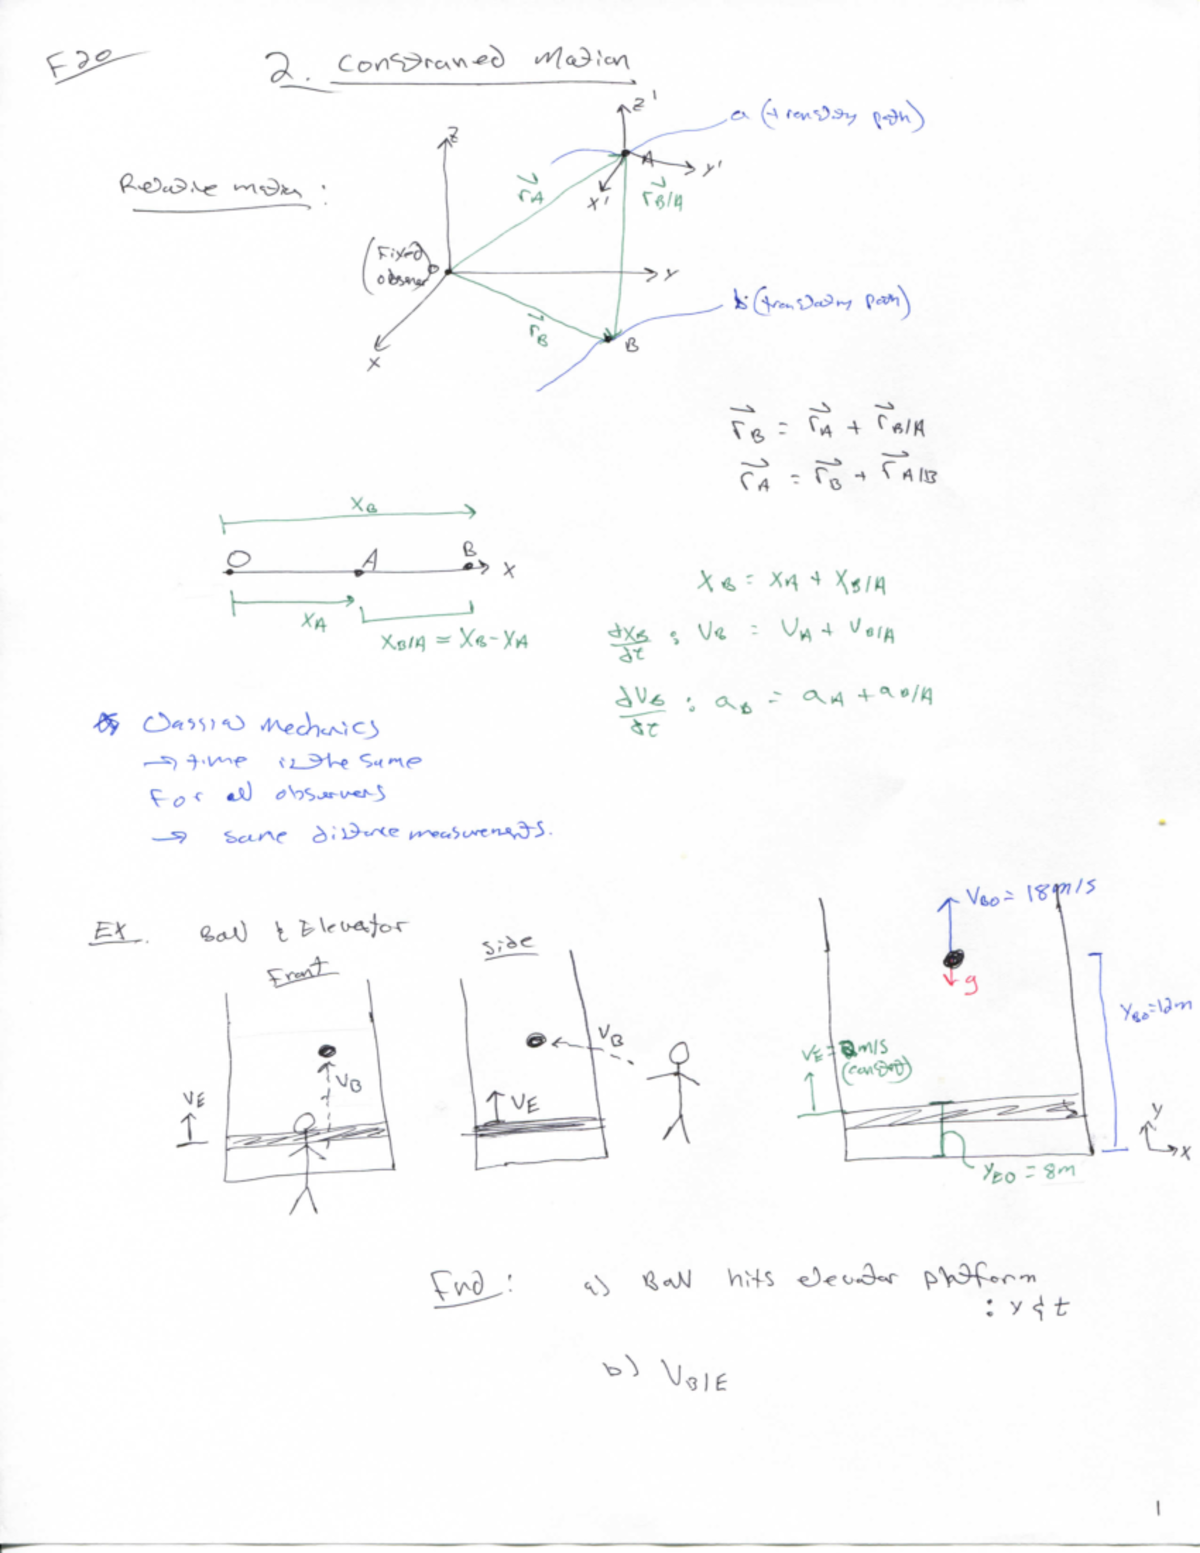 F20
2. Constrained Motion
Relative motion:
Z
Z'
a (translating path)
A
Y'
X'
r⃗A
r⃗B/A
(Fixed observer)
O
Y
X
r⃗B
B
b (translating path)
r⃗B = r⃗A + r⃗B/A
r⃗A = r⃗B + r⃗A/B
XB
O A B X
XA
XB/A = XB - XA
XB = XA + XB/A
dXB/dt : VB = VA + VB/A
dVB/dt : aB = aA + aB/A
Classical Mechanics
→ time is the same
For all observers
→ same distance measurements.
EX. Ball & Elevator
Front
VE
VB
Side
VE
VB
VBO = 18 m/s
g
YBO = 12m
VE = 2 m/s
(constant)
YEO = 8m
Y
X
Find: a) Ball hits elevator platform
: y & t
b) VB/E
1